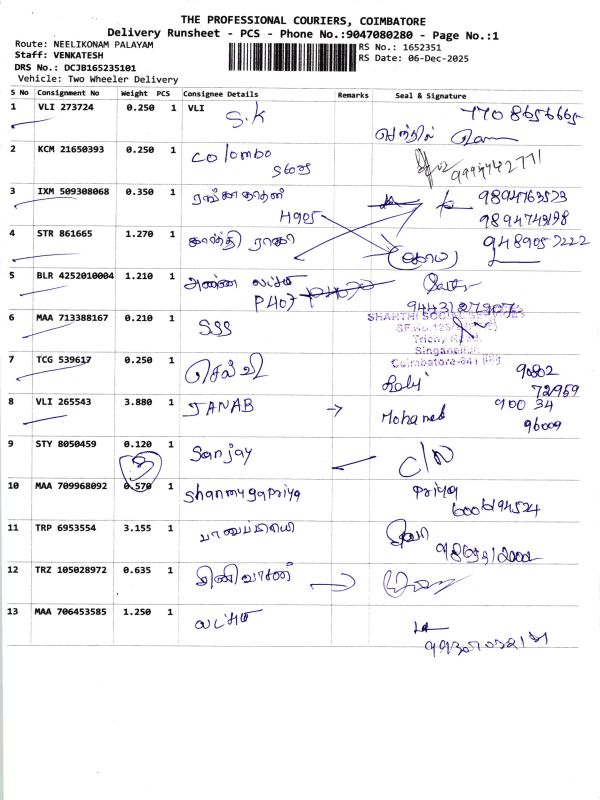 THE PROFESSIONAL COURIERS, COIMBATORE
Delivery Runsheet - PCS - Phone No.:9047080280 - Page No.:1
Route: NEELIKONAM PALAYAM
RS No.: 1652351
Staff: VENKATESH
RS Date: 06-Dec-2025
DRS No.: DCJB165235101
Vehicle: Two Wheeler Delivery
S No Consignment No Weight PCS Consignee Details Remarks Seal & Signature
1 VLI 273724 0.250 1 VLI
S.K
செந்தில்
2 KCM 21650393 0.250 1
Colombo
3 IXM 509308068 0.350 1 ரங்கநாதன்
H905
9894763523
4 STR 861665 1.270 1 கார்த்தி ராஜா
9489057222
5 BLR 4252010004 1.210 1 அண்ண லட்சுமி
P407
6 MAA 713388167 0.210 1 SSS
SHANTHI SOCIAL SERVICES
Trichy Road,
Singanallur
7 TCG 539617 0.250 1 செல்வி
90802
72959
8 VLI 265543 3.880 1 JANAB → Mohaned 900 34
96009
9 STY 8050459 0.120 1 Sanjay
10 MAA 709968092 0.570 1 Shanmugapriya Priya
11 TRP 6953554 3.155 1
12 TRZ 105028972 0.635 1 சீனிவாசன்
13 MAA 706453585 1.250 1 லட்சுமி